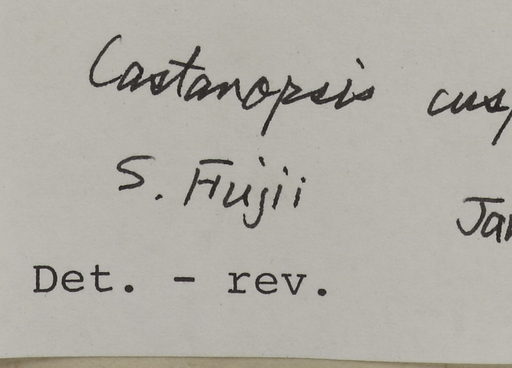 Castanopsis cusp
S. Fujii Jan
Det. - rev.